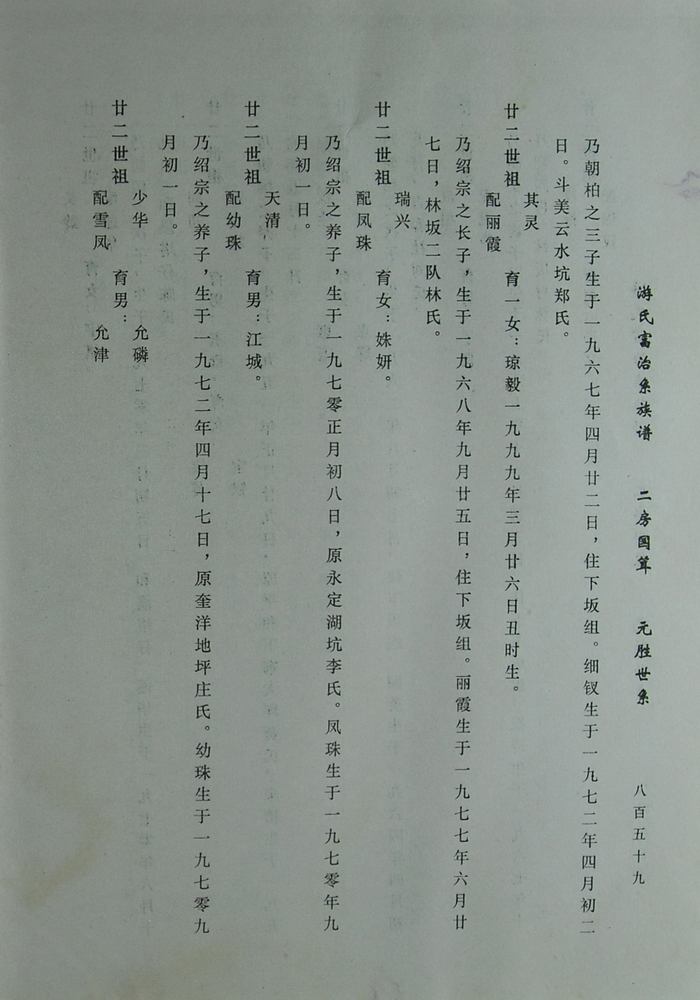 游氏富治系族谱 二房国箕 元胜世系 八百五十九
乃朝柏之三子生于一九六七年四月廿二日，住下坂组。细钗生于一九七二年四月初二
日。斗美云水坑郑氏。
廿二世祖
其灵
配丽霞
育一女：琼毅一九九九年三月廿六日丑时生。
乃绍宗之长子，生于一九六八年九月廿五日，住下坂组。丽霞生于一九七七年六月廿
七日，林坂二队林氏。
廿二世祖
瑞兴
配凤珠
育女：姝妍。
乃绍宗之养子，生于一九七零正月初八日，原永定湖坑李氏。凤珠生于一九七零年九
月初一日。
廿二世祖
天清
配幼珠
育男：江城。
乃绍宗之养子，生于一九七二年四月十七日，原奎洋地坪庄氏。幼珠生于一九七零九
月初一日。
廿二世祖
少华
配雪凤
育男：
允磷
允津